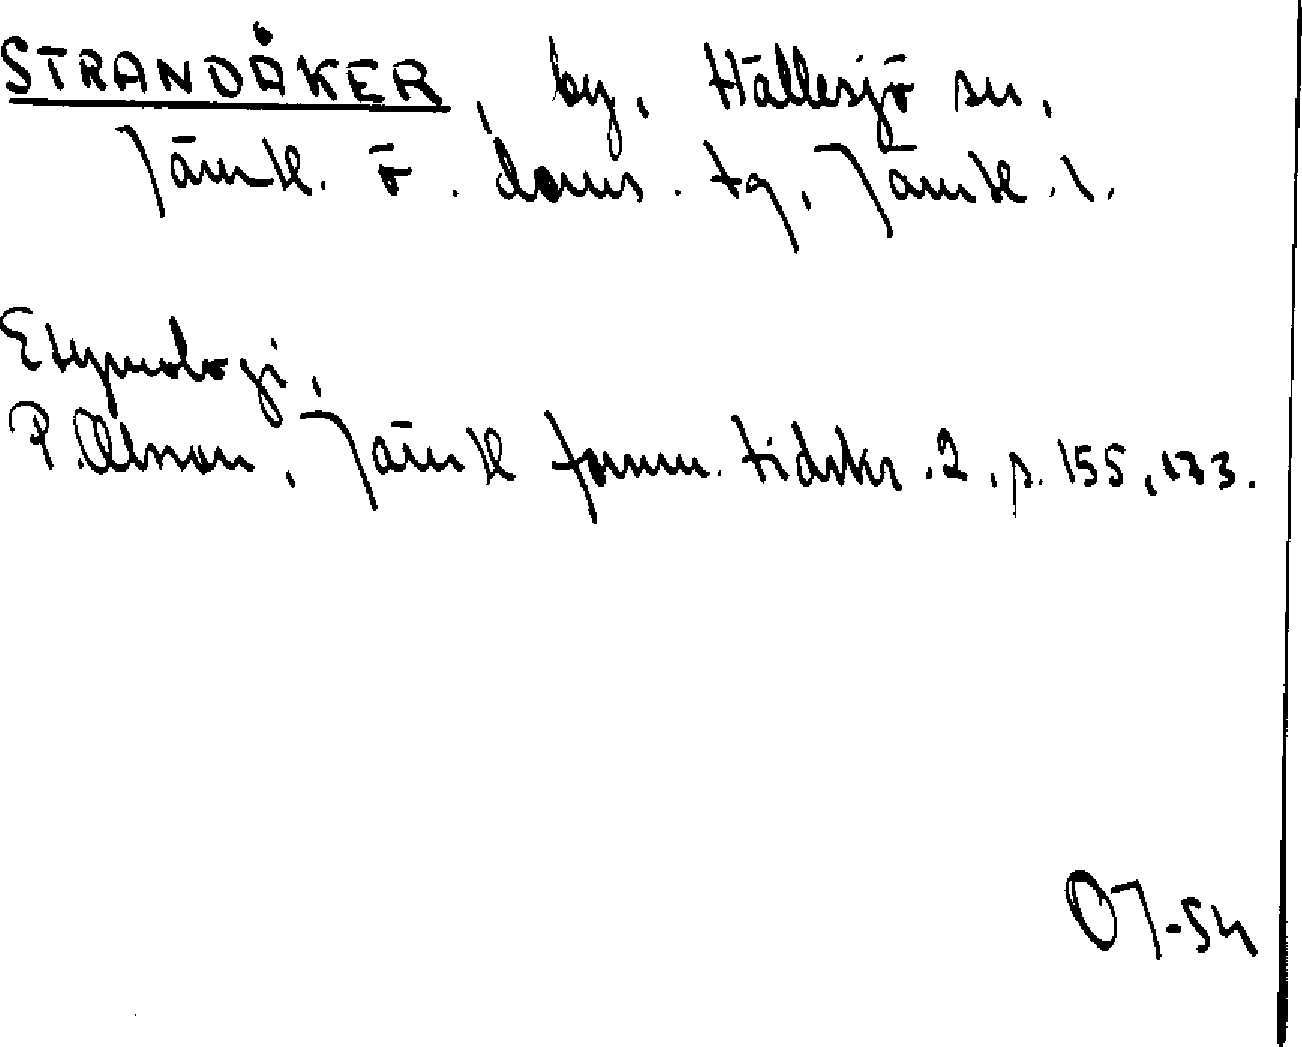 STRANDÅKER, by, Hällesjö sn,
Jämtl. ö. doms. tg, Jämtl. l.
Etymologi,
P. Olsson, Jämtl fornm. tidskr. 2, p. 155, 173.
OJ-54